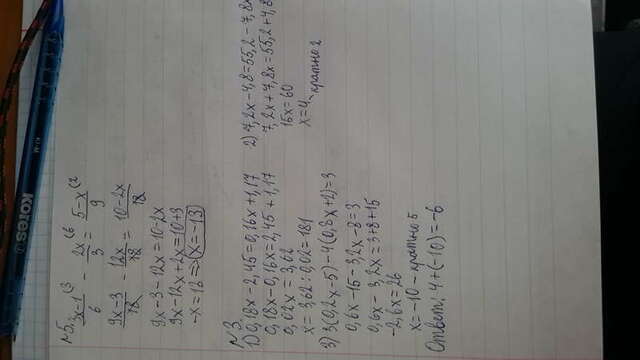 Kores
№5.
3x-1/6 (3 - 2x/3 (6 = 5-x/9 (2
9x-3/18 - 12x/18 = 10-2x/18
9x-3-12x=10-2x
9x-12x+2x=10+3
-x=13 => x=-13
№3.
1) 0,18x-2,45=0,16x+1,17
0,18x-0,16x=2,45+1,17
0,02x=3,62
x=3,62:0,02=181
2) 7,2x-4,8=55,2-7,8x
7,2x+7,8x=55,2+4,8
15x=60
x=4 - кратно 2
3) 3(0,2x-5)-4(0,8x+2)=3
0,6x-15-3,2x-8=3
0,6x-3,2x=3+8+15
-2,6x=26
x=-10 - кратно 5
Ответ: 4+(-10)=-6